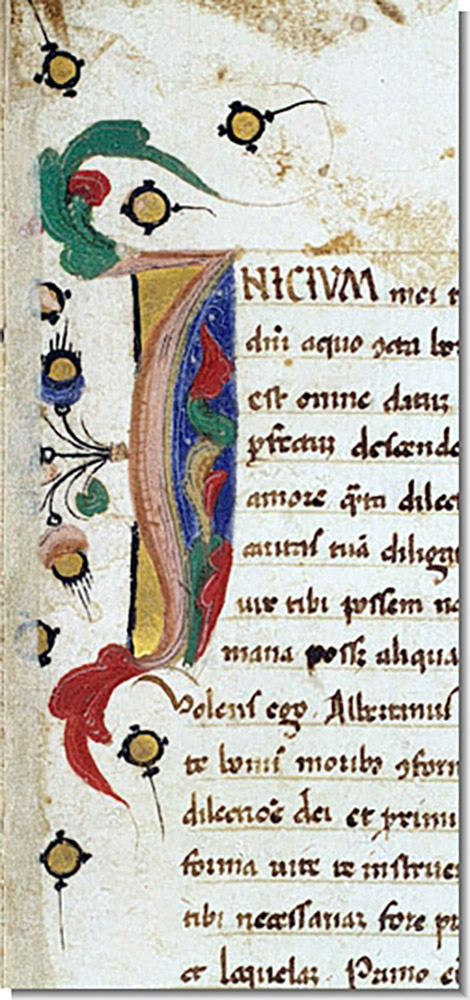 INICIUM mei t
dn̄i a quo ꝯcta bo
est omne datuꝫ
ꝑfectuꝫ descende
amore qͣnta dilec
caritatis tuā dilig
uiꝝ tibi possem no
mana possꝫ aliqua
Volens ego Albertanus
te bonis moribꝫ ꝯform
dilectiōe dei et primi
forma uite te instruer
tibi necessariaꝫ fore
et loquelaꝫ. Primo